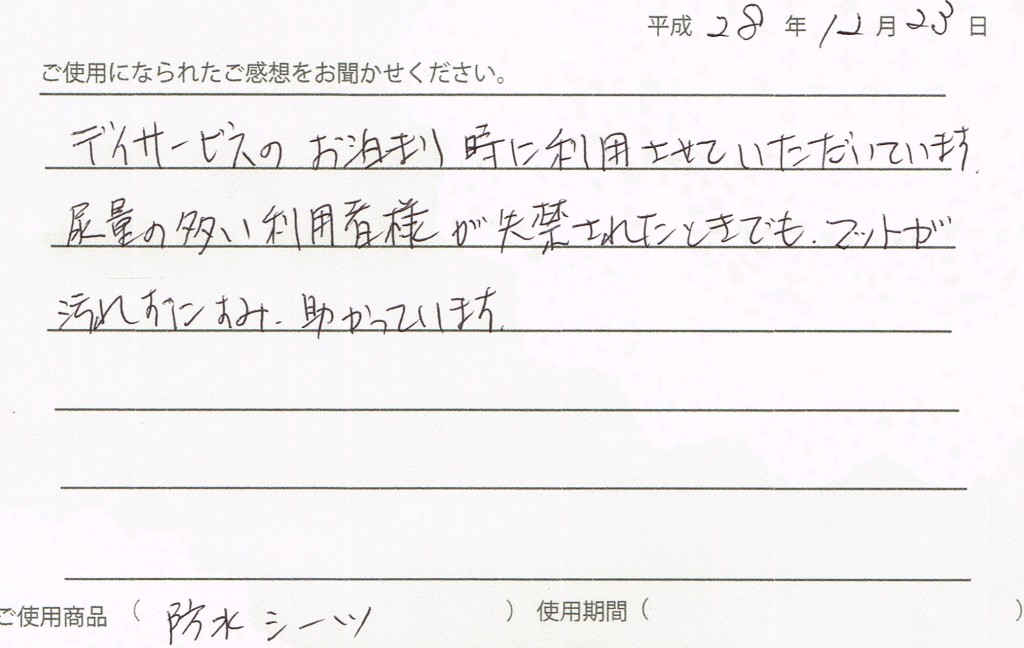 平成 28 年 12 月 23 日
ご使用になられたご感想をお聞かせください。
デイサービスの お泊まり 時に利用させていただいています。
尿量の多い利用者様が失禁されたときでも、マットが
汚れずにすみ、助かっています。
ご使用商品 ( 防水シーツ ) 使用期間 ( )